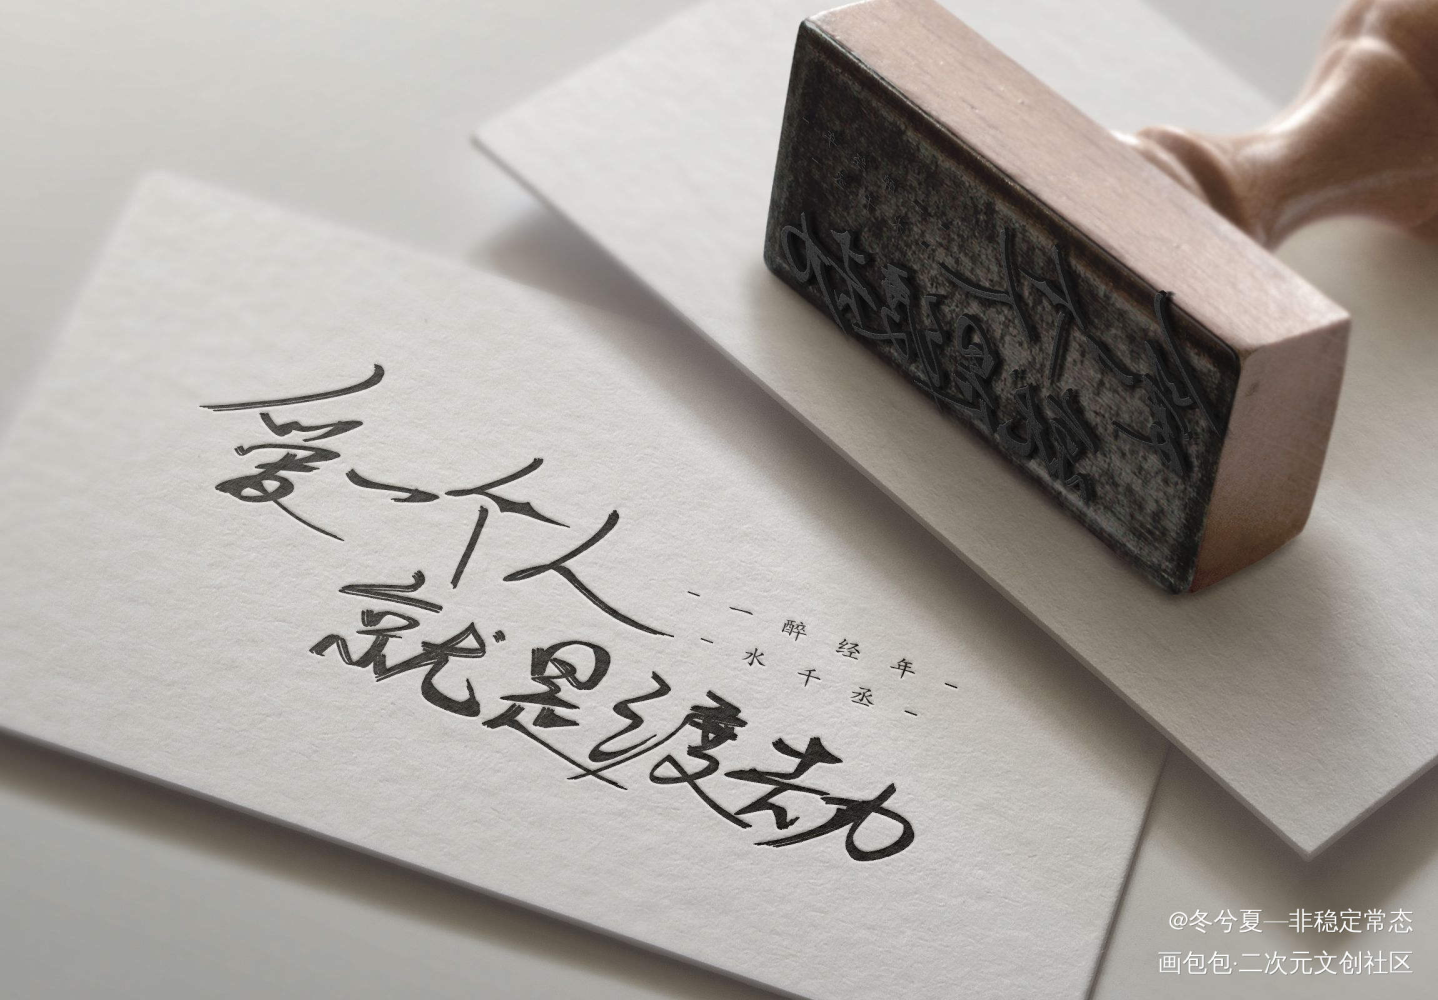 爱一个人
就是渡劫
- 一 醉 经 年 -
- 水 千 丞 -
@冬兮夏—非稳定常态
画包包·二次元文创社区